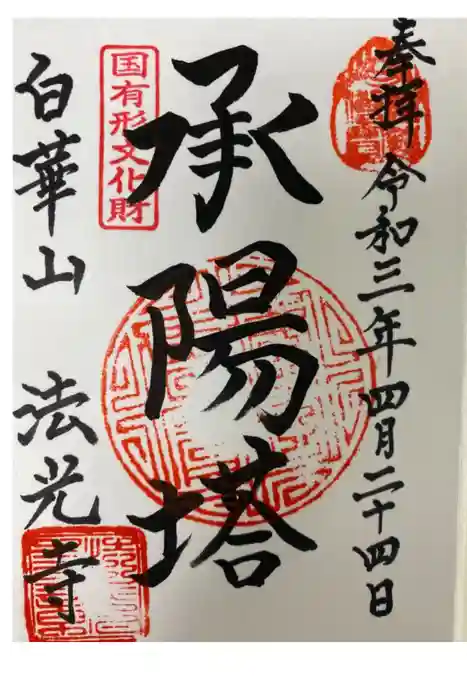 奉拝 令和三年四月二十四日
承陽塔
国有形文化財
白華山 法光寺